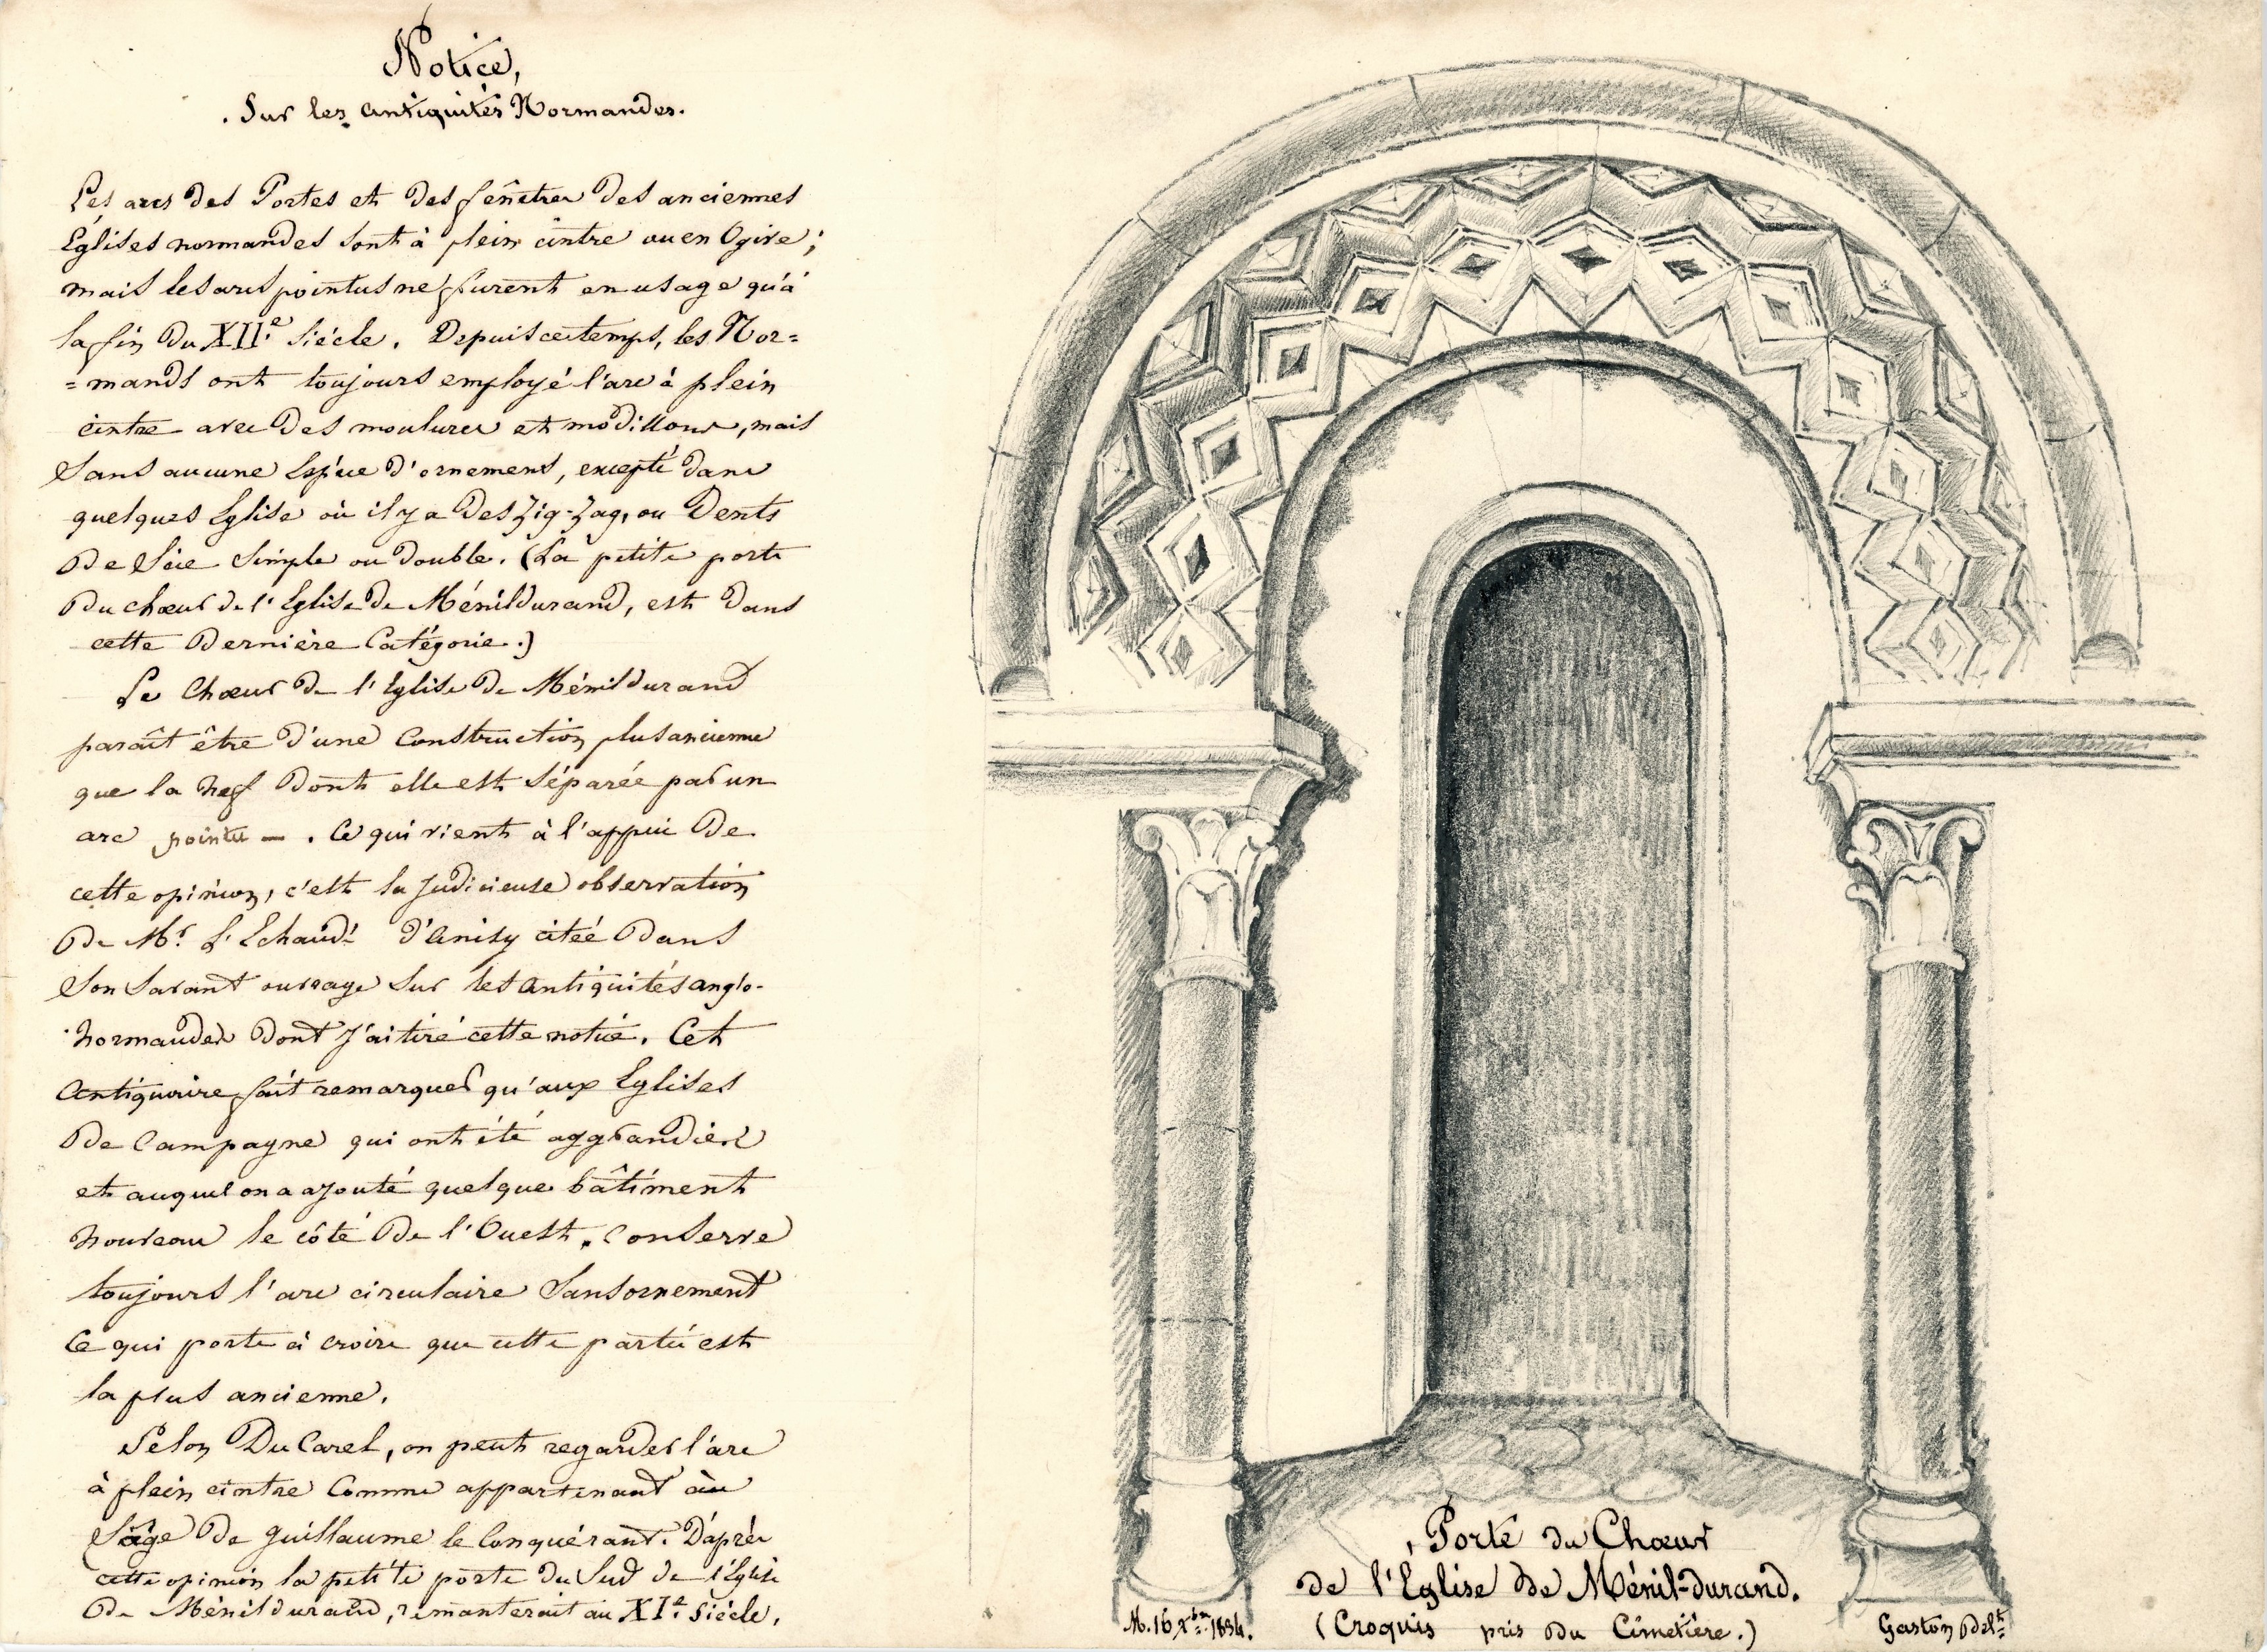 Notice,
. Sur les antiquités Normandes.
Les arcs des Portes et des fenêtres des anciennes
Églises normandes sont à plein cintre ou en Ogive ;
mais les arcs pointus ne furent en usage qu'à
la fin du XII.e Siécle. Depuis ce temps, les Nor=
=mands ont toujours employé l'arc à plein
cintre avec des moulures et modillons, mais
sans aucune Espéce d'ornement, excepté dans
quelques Eglise où il y a des Zig-Zag, ou Dents
de Scie Simple ou double. (La petite porte
du chœur de l'Eglise de Ménildurand, est dans
cette Dernière Catégorie.)
Le Chœur de l'Eglise de Ménildurand
paraît être d'une Construction plus ancienne
que la Nef dont elle est séparée par un
arc pointu - . Ce qui vient à l'appui de
cette opinion, c'est la judicieuse observation
de Mr. L. Echaudé d'Anisy citée dans
son savant ouvrage sur les antiquités anglo-
-normandes dont j'ai tiré cette notice. Cet
Antiquaire fait remarquer qu'aux Eglises
de Campagne qui ont été aggrandies
et auquel on a ajouté quelque bâtiment
nouveau le côté de l'Ouest, conserve
toujours l'arc circulaire sans ornement
Ce qui porte à croire que cette partie est
la plus ancienne.
Selon Du Carel, on peut regarder l'arc
à plein cintre Comme appartenant au
Siége de Guillaume le Conquérant. D'après
cette opinion la petite porte du Sud de l'Eglise
de Ménildurand, remonterait au XI.e Siécle.
Porte du Chœur
de l'Eglise de Ménil-durand.
(Croquis pris du Cimetière.)
M. 16 Xbre 1894.
Gaston Delt